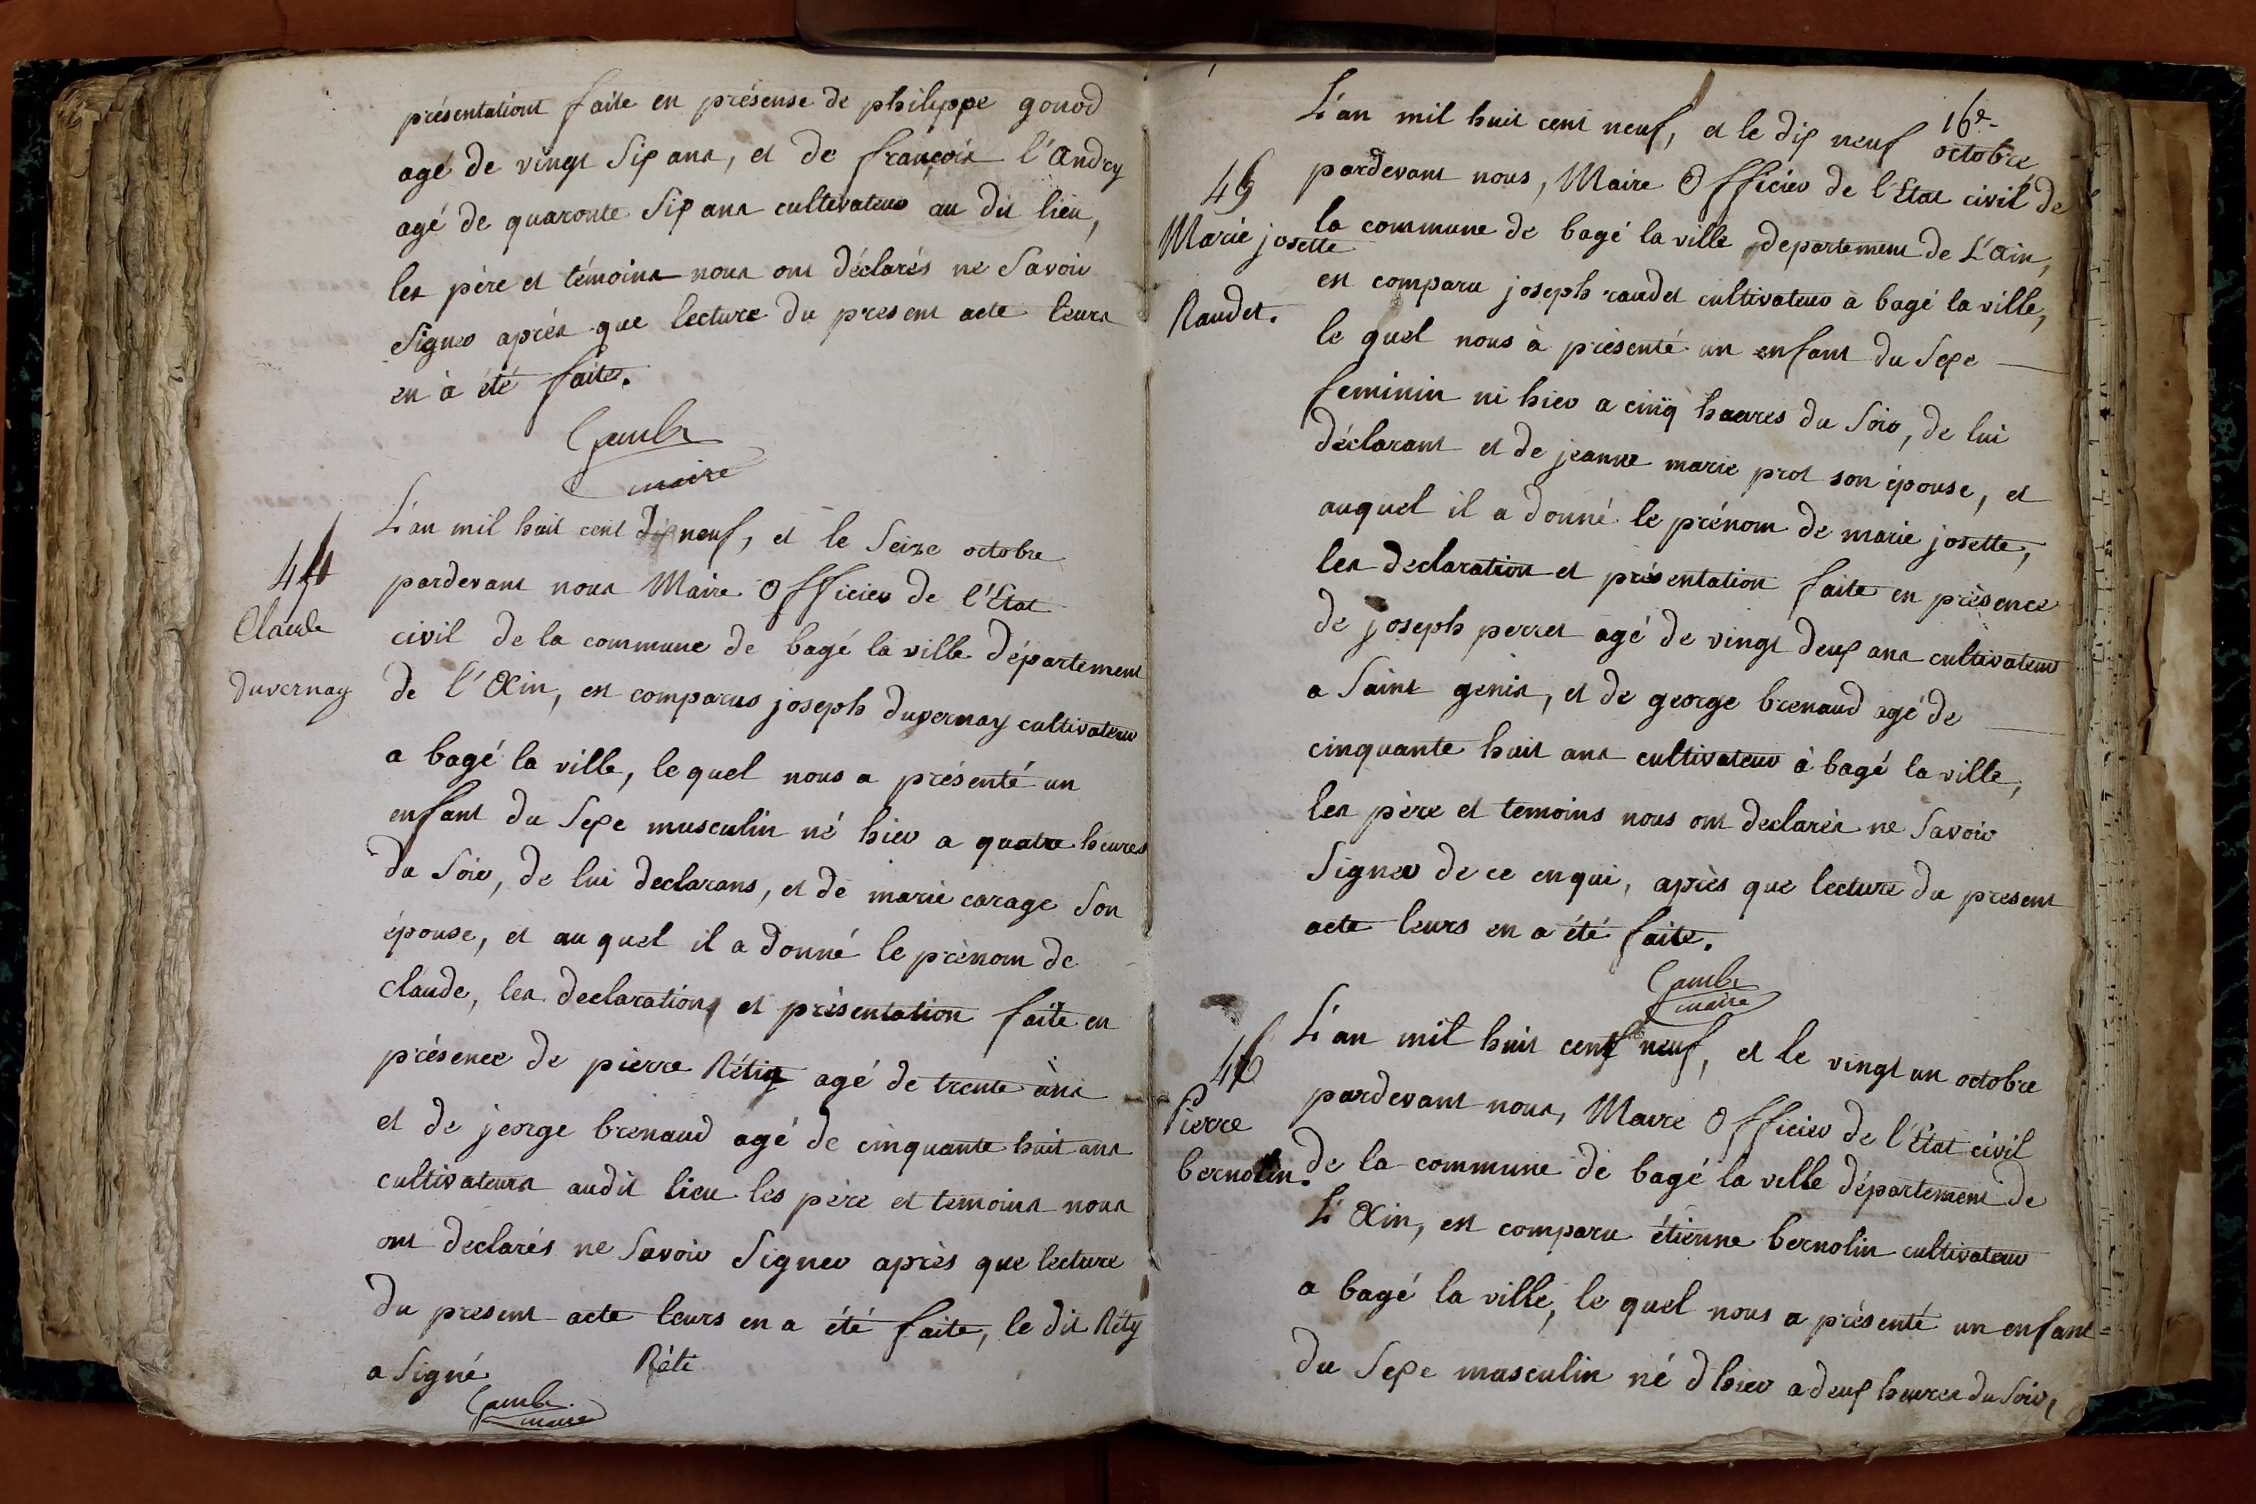 présentationt faite en présense de philippe gonod
agé de vingt six ans, et de françois l'Andry
agé de quaronte six ans cultivateur au dit lieu,
les père et témoins nous ont déclarés ne Savoir
Signer après que lecture du present acte leurs
en à été faite.
Gambe
maire
44
Claude
duvernay
L'an mil huit cent dix neuf, et le Seize octobre
pardevant nous Maire Officier de l'Etat
civil de la commune de bagé la ville département
de l'Ain, est comparus joseph duvernay cultivateur
a bagé la ville, le quel nous a présenté un
enfant du Sexe musculin né hier a quatre heures
du Soir, de lui declarans, et de marie carage Son
épouse, et au quel il a donné le prénom de
claude, les declarations et présentation faite en
présence de pierre Rétiy agé de trente ans
et de jeorge brenaud agé de cinquante huit ans
cultivateurs audit lieu les père et temoins nous
ont declarés ne Savoir Signer après que lecture
du present acte leurs en a été faite, le dit Réty
a Signé
Réti
Gambe
maire
16e.
L'an mil huit cent neuf, et le dix neuf octobre
45
Marie josette
Raudet.
pardevant nous, Maire Officier de l'Etat civil de
la commune de bagé la ville departement de L'Ain,
est comparu joseph raudet cultivateur à bagé la ville,
le quel nous à présenté un enfant du Sexe
feminin ni hier a cinq heures du Soir, de lui
déclarant et de jeanne marie prot son épouse, et
auquel il a donné le prénom de marie josette,
les declaration et présentation faite en présence
de joseph perret agé de vingt deux ans cultivateur
a Saint genis, et de george brenaud agé de
cinquante huit ans cultivateur à bagé la ville,
les père et temoins nous ont declarés ne Savoir
Signer de ce enqui, après que lecture du present
acte leurs en a été faite.
Gambe
maire
46
Pierre
bernolin.
L'an mil huit cent neuf, et le vingt un octobre
pardevant nous, Maire Officier de l'Etat civil
de la commune de bagé la ville département de
L'Ain, est comparu étienne bernolin cultivateur
a bagé la ville, le quel nous a présenté un enfant=
du Sexe masculin né d'hier a deux heures du Soir,